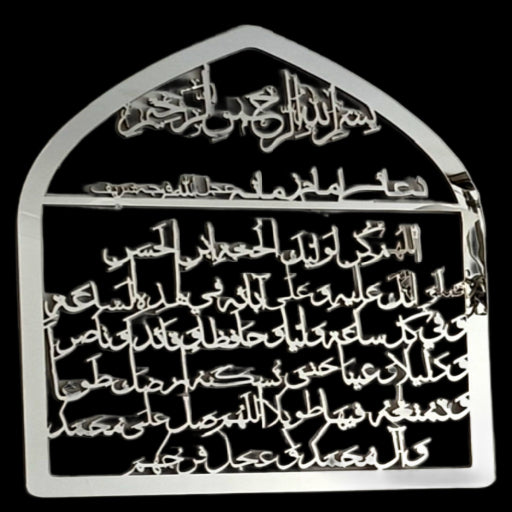 بسم الله الرحمن الرحیم
دعای امام زمانه عجل الله فرجه شریف
اللهم کن لولیک الحجه ابن الحسن
صلواتک علیه و علی آبائه فی هذه الساعه
و فی کل ساعه ولیا و حافظا و قائدا و ناصرا
و دلیلا و عینا حتی تسکنه ارضک طوعا
و تمتعه فیها طویلا اللهم صل علی محمد
و آل محمد و عجل فرجهم